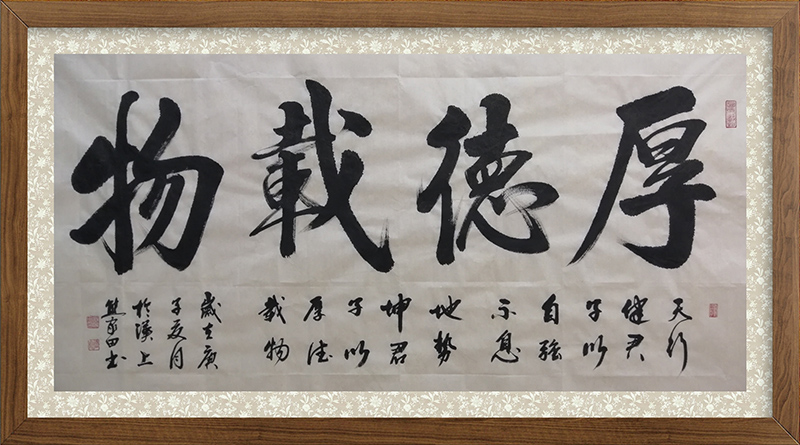 厚德載物
天行
健君
子以
自强
不息
地勢
坤君
子以
厚德
載物
歲在庚
子夏月
於漢上
书